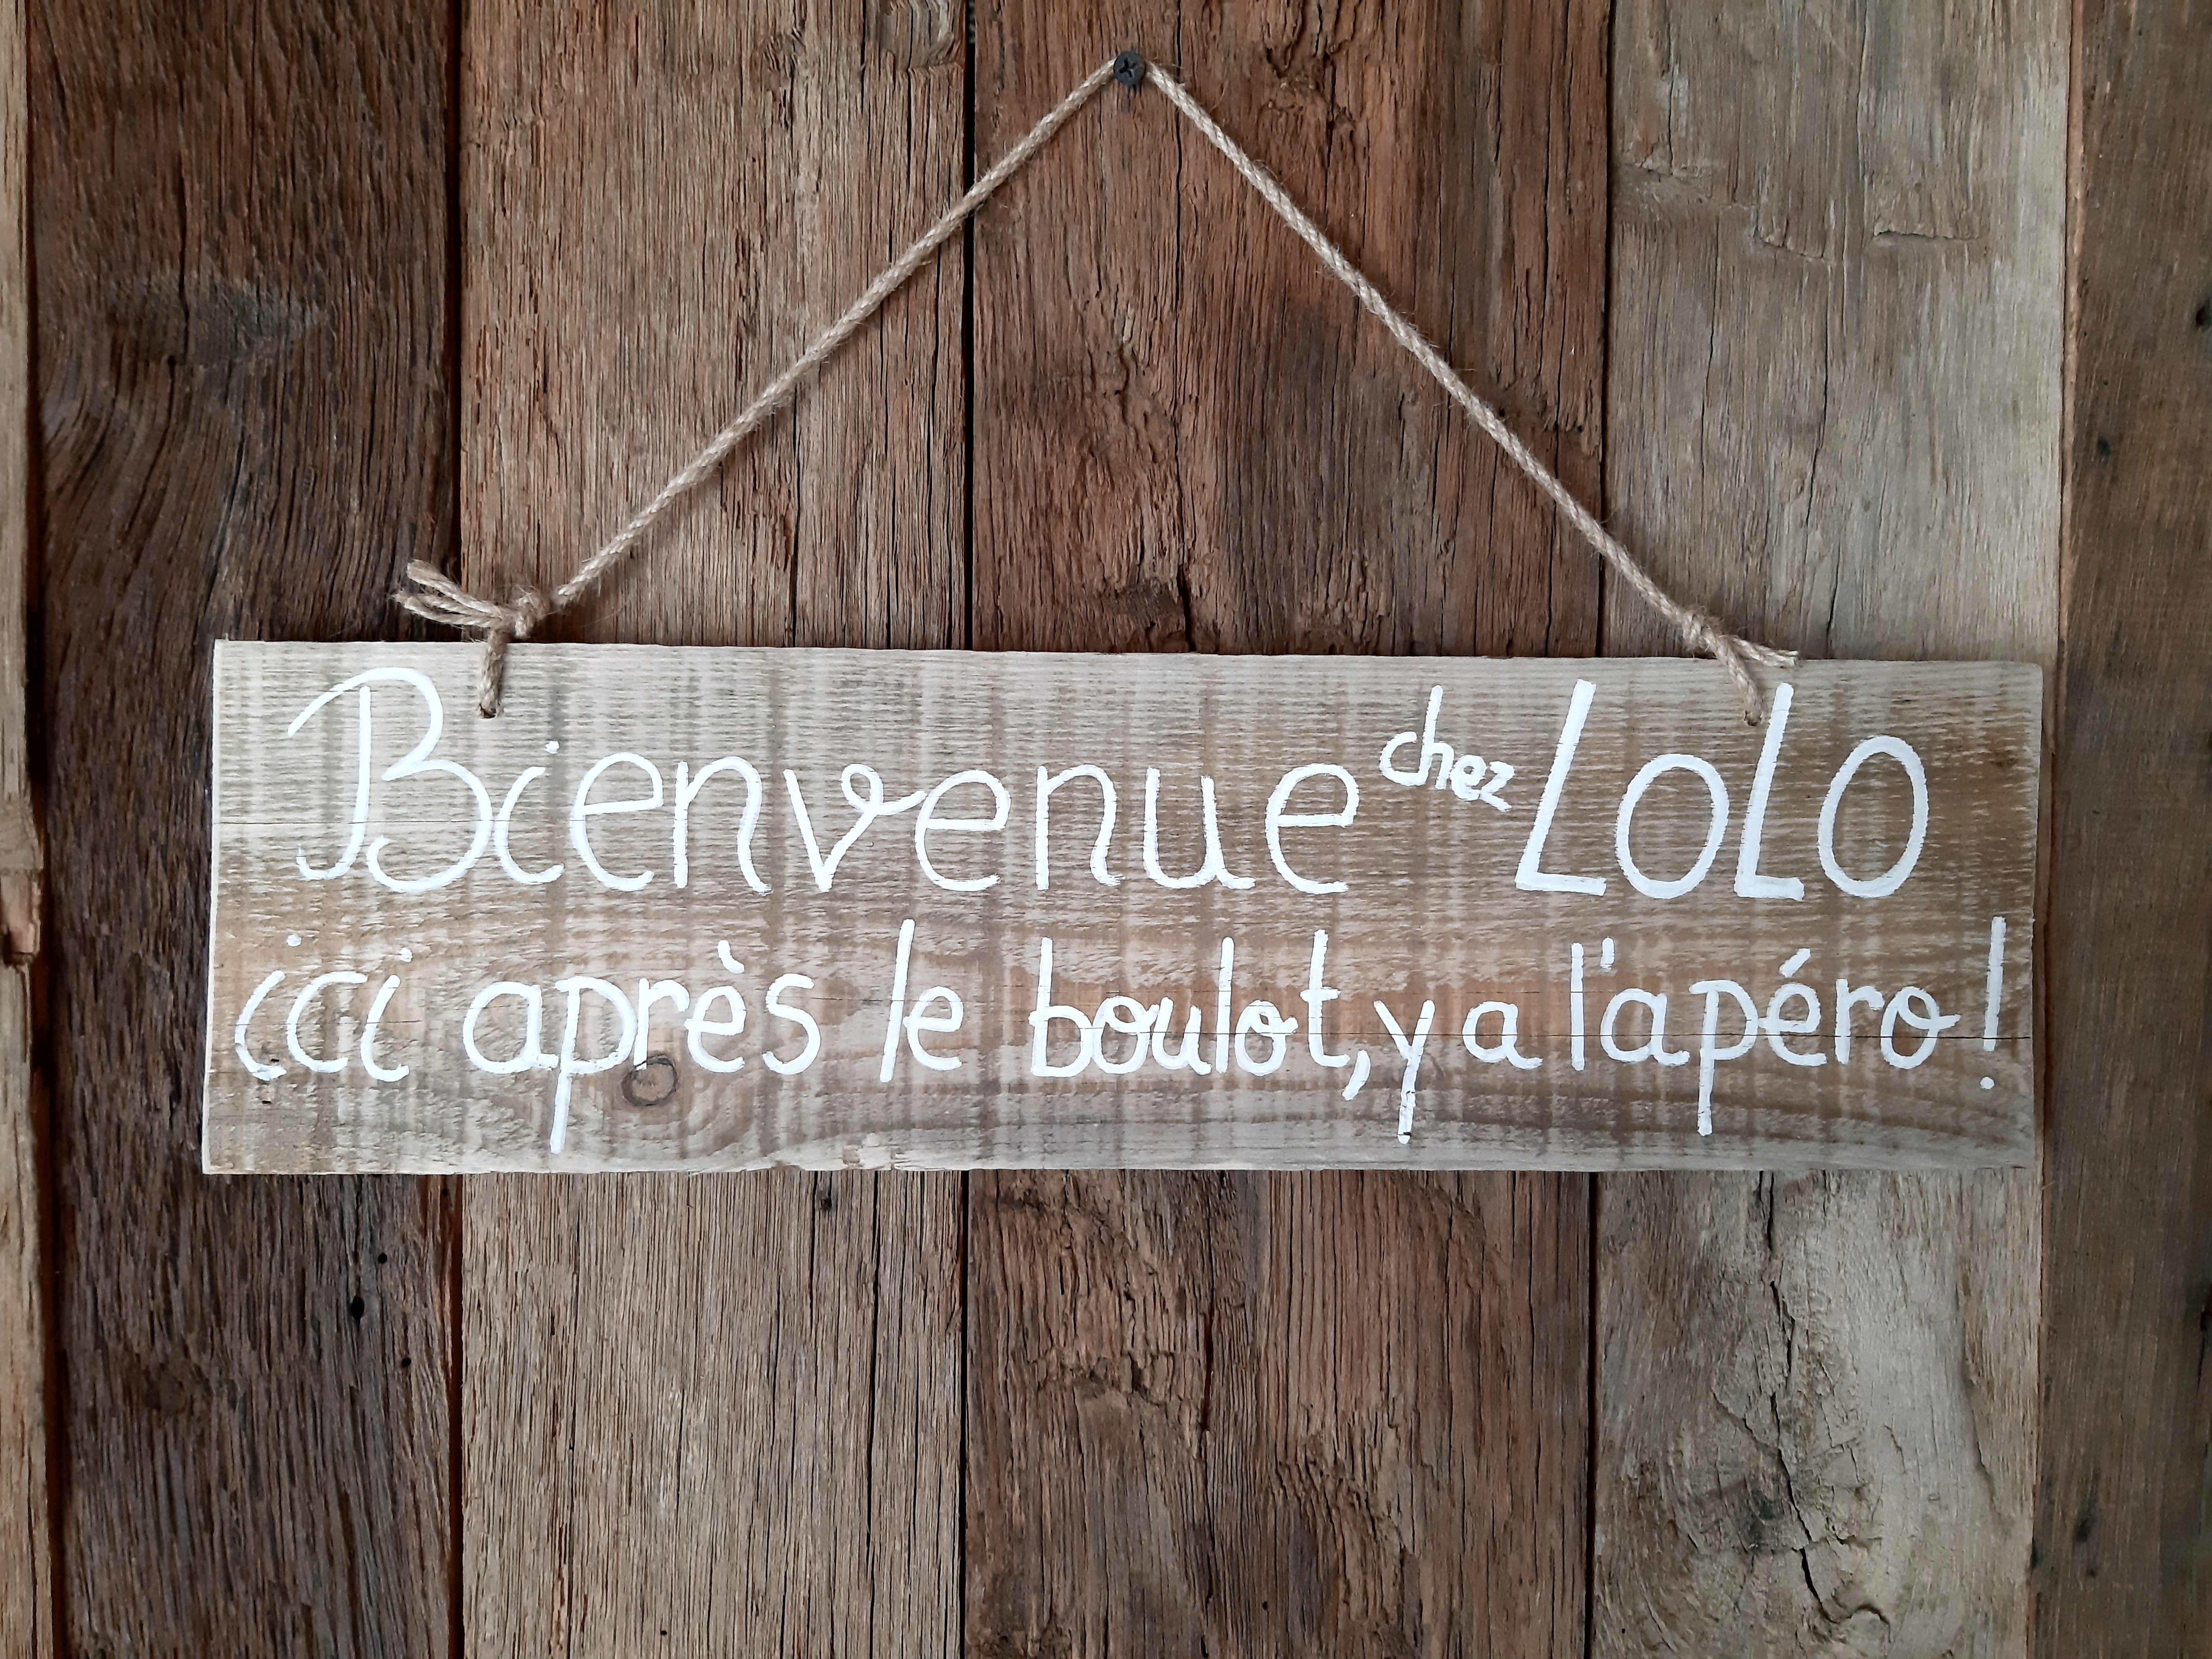 Bienvenue chez LOLO
ici après le boulot, y a l'apéro !